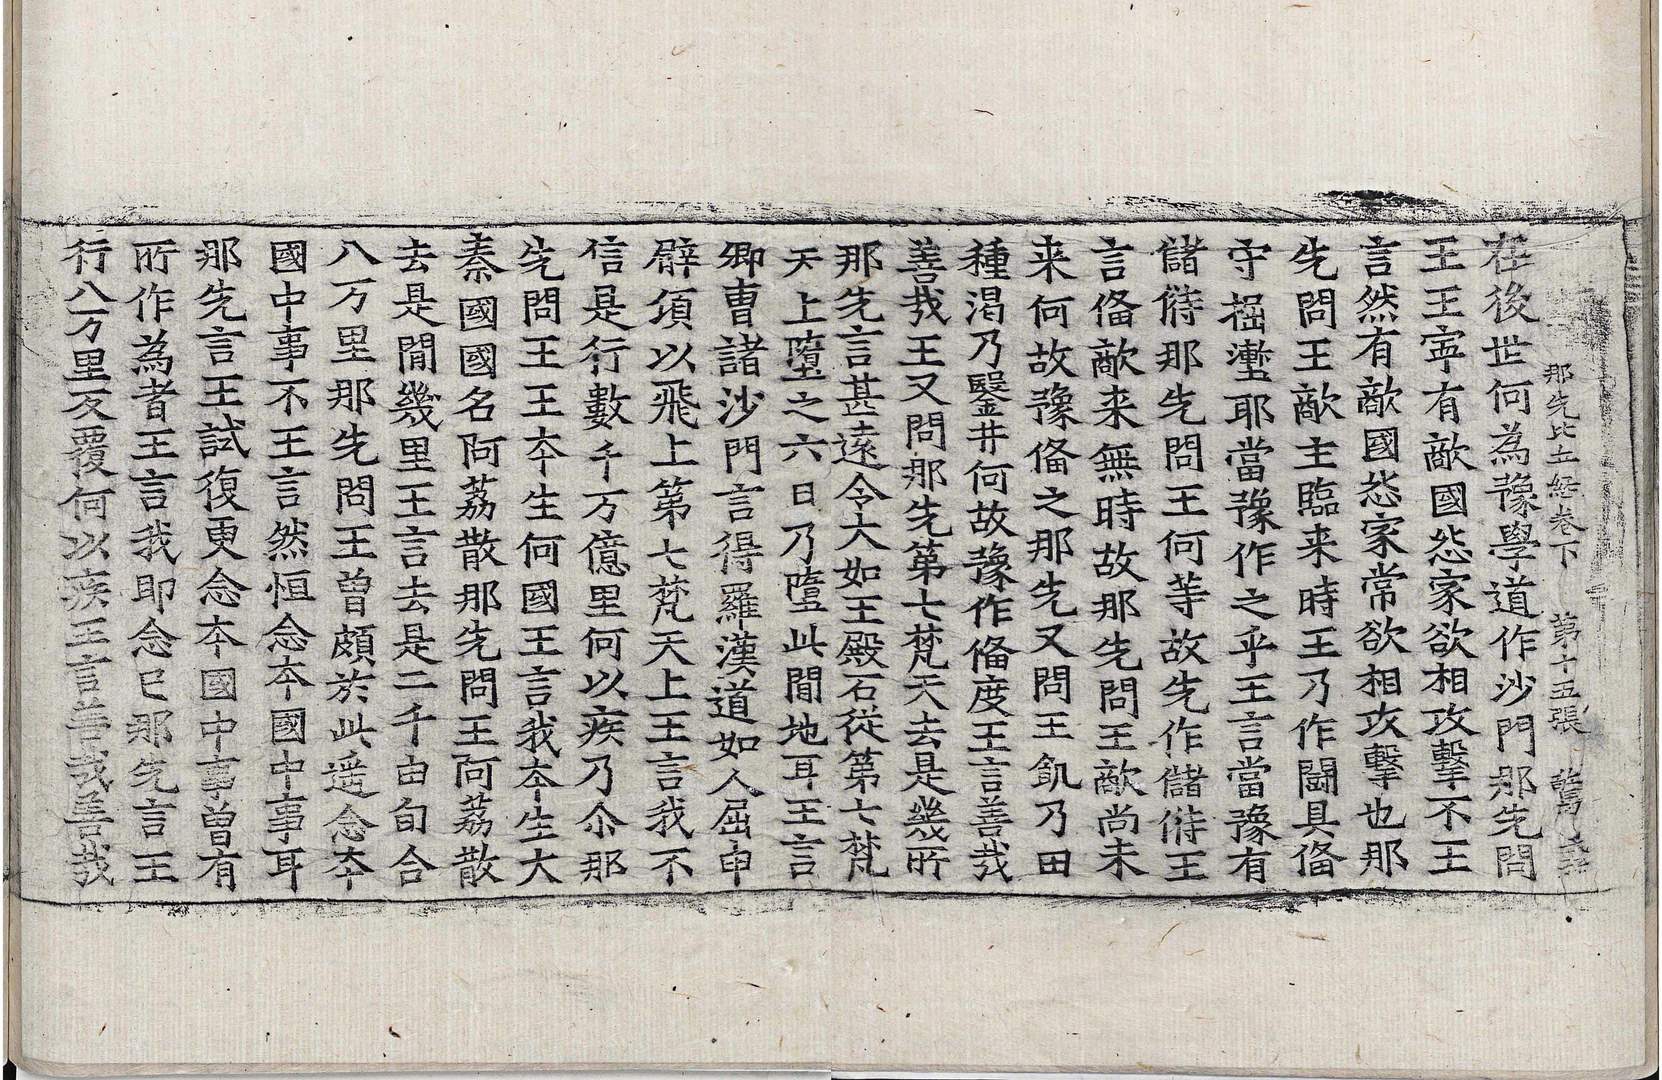 那先比丘經卷下　第十五張　驚
在後世何為豫學道作沙門那先問
王王寧有敵國怨家欲相攻擊不王
言然有敵國怨家常欲相攻擊也那
先問王敵主臨来時王乃作鬪具偹
守掘壍耶當豫作之乎王言當豫有
儲偫那先問王何等故先作儲偫王
言偹敵来無時故那先問王敵尚未
来何故豫偹之那先又問王飢乃田
種渴乃鑿井何故豫作偹度王言善㦲
善㦲王又問那先第七梵天去是幾所
那先言甚遠令大如王殿石從第七梵
天上墮之六日乃墮此閒地耳王言
卿曹諸沙門言得羅漢道如人屈申
臂項以飛上第七梵天上王言我不
信是行數千万億里何以疾乃尒那
先問王王夲生何國王言我夲生大
秦國國名阿荔散那先問王阿荔散
去是閒幾里王言去是二千由旬合
八万里那先問王曽頗於此遥念夲
國中事不王言然恒念夲國中事耳
那先言王試復更念夲國中事曽有
所作為者王言我即念已那先言王
行八万里反覆何以疾王言善㦲善㦲